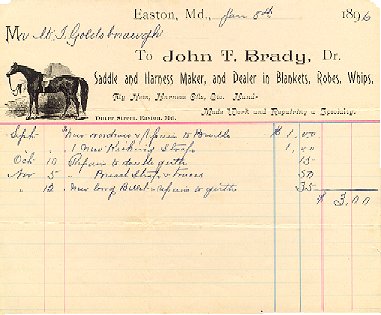 Easton, Md., Jan 8th 1896
Mr M. T. Goldsborough
To John F. Brady, Dr.
Saddle and Harness Maker, and Dealer in Blankets, Robes, Whips,
Fly Nets, Harness Oils, Etc.
Made Work and Repairing a Specialty.
Street, Easton, Md.
Sept New & Repairs to Bridle $ 1.00
" 1 New Kicking Strap 1.00
Oct 10 Repairs to saddle girth 15
Nov 5 " Breast Strap & traces 50
" 12 New long Billet & repairs to girth 35
$ 3.00